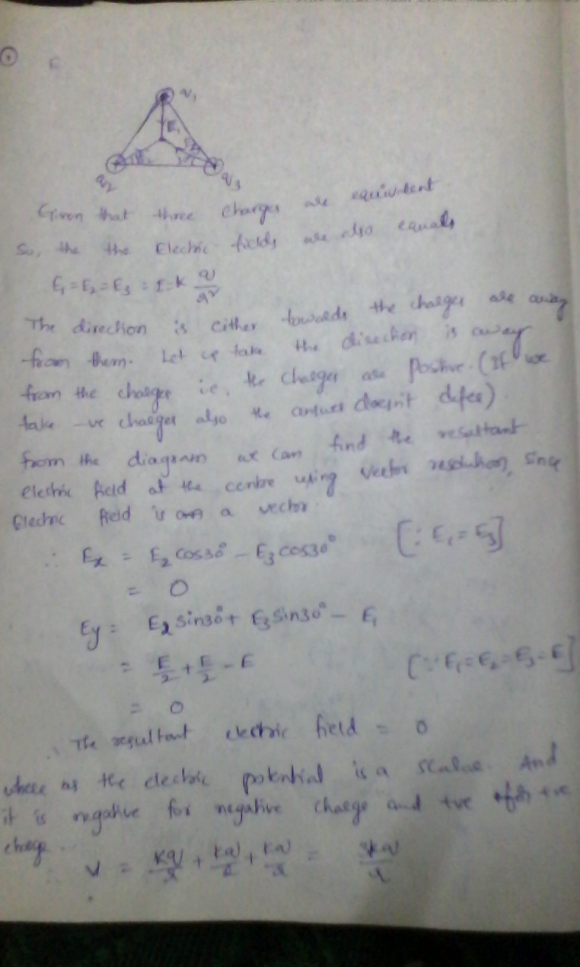 q₁
E₁
q₂
q₃
Given that three charges are equivalent.
So, the the Electric fields are also equals
E₁ = E₂ = E₃ = E = k q/r²
The direction is either towards the charges are away
from them. Let us take the direction is away
from the charges i.e, the charges are positive. (If we
take -ve charges also the answer doesn't defer).
from the diagram we can find the resultant
electric field at the centre using vector resolution, since
Electric field is a vector.
∴ Ex = E₂ cos30° - E₃ cos30° [∵ E₁ = E₃]
= 0
Ey = E₂ sin30° + E₃ sin30° - E₁
= E/2 + E/2 - E [∵ E₁ = E₂ = E₃ = E]
= 0
∴ The resultant electric field = 0
where as the electric potential is a scalar. And
it is negative for negative charge and +ve for +ve
charge.
V = kq/r + kq/r + kq/r = 3kq/r